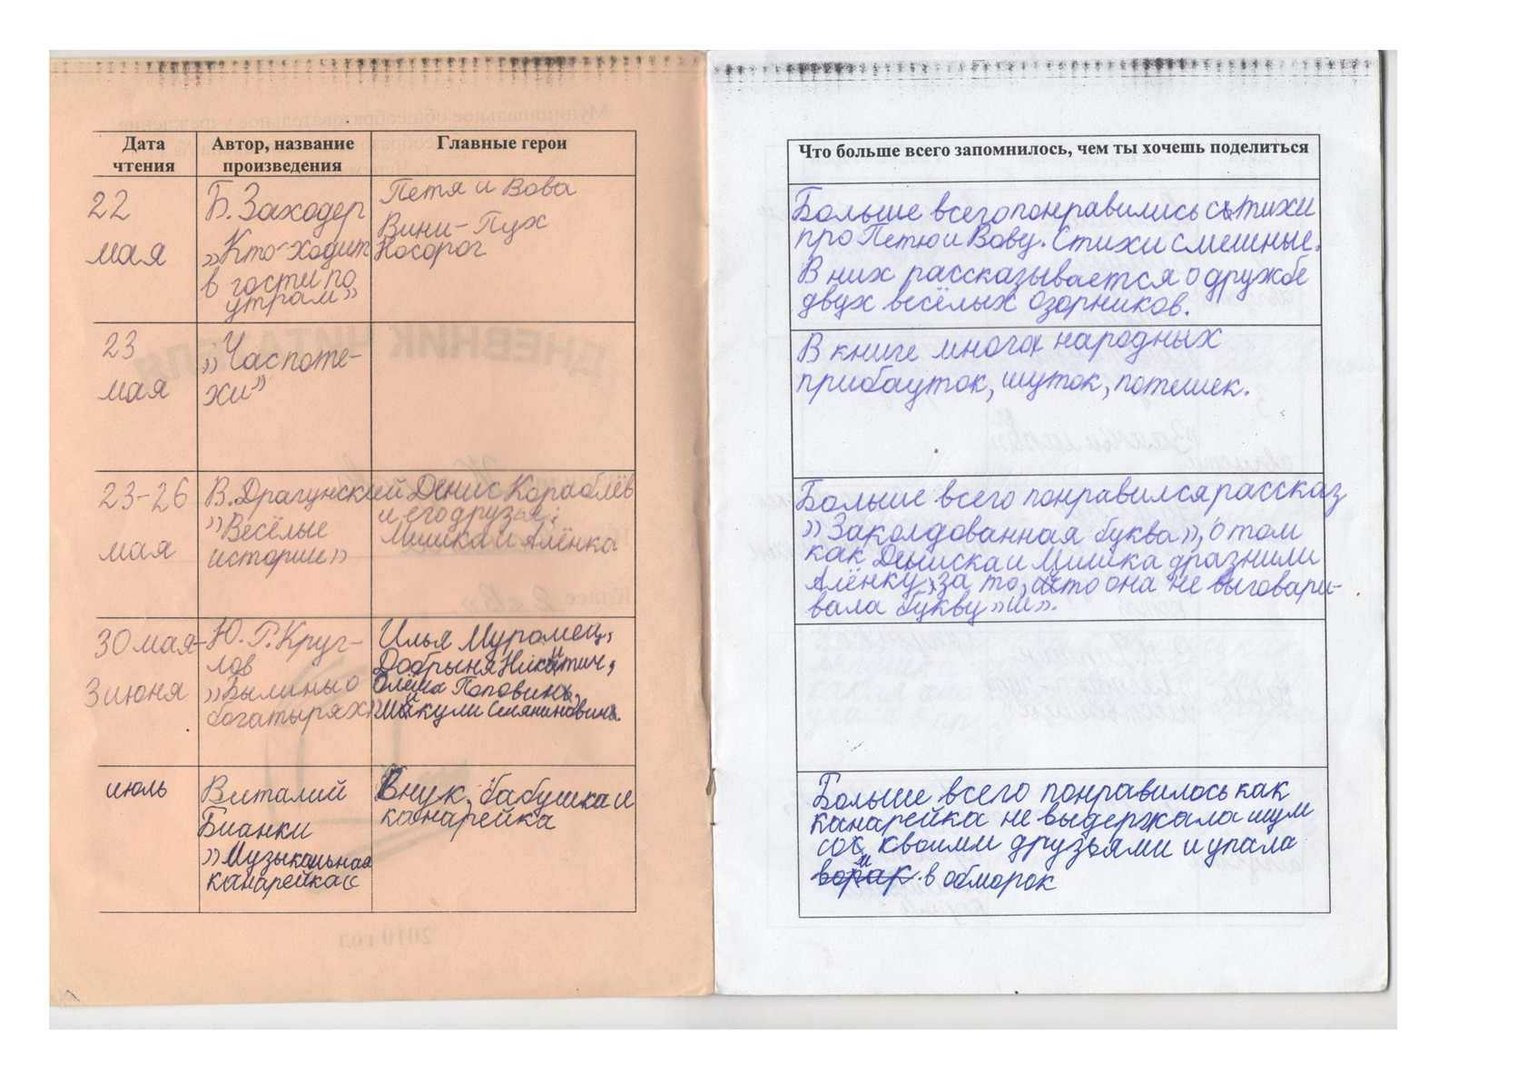 Дата
чтения
Автор, название
произведения
Главные герои
22
мая
Б. Заходер
»Кто ходит
в гости по
утрам»
Петя и Вова
Вини-Пух
Носорог
23
мая
»Час поте-
хи»
23-26
мая
В. Драгунский
»Весёлые
истории»
Денис Кораблёв
и его друзья:
Мишка и Алёнка
30 мая-
3 июня
Ю. Г. Круг-
лов
»Былины о
богатырях»
Илья Муромец,
Добрыня Никитич,
Алёша Попович,
Микули Селянинович.
июль
Виталий
Бианки
»Музыкальная
канарейка«
Внук, бабушка и
канарейка
Что больше всего запомнилось, чем ты хочешь поделиться
Больше всего понравились стихи
про Петю и Вову. Стихи смешные.
В них рассказывается о дружбе
двух весёлых озорников.
В книге многа народных
прибауток, шуток, потешек.
Больше всего понравился рассказ
»Заколдованная буква», о том
как Дениска и Мишка дразнили
Алёнку, за то, что она не выговари-
вала букву »ш».
Больше всего понравилось как
канарейка не выдержала шум
со своими друзьями и упала
в обморок
ДНЕВНИК ЧИТАТЕЛЯ
2010 год